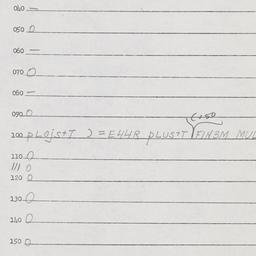 040 —
050 0
060 —
070 0
080 —
090 0
100 pLΦjs+T ) = E44R pLUS+T FINBM MUL
110 0
111 0
120 0
130 0
140 0
150 0